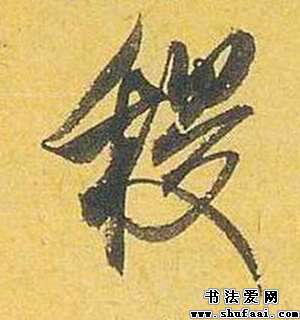 稷
书法爱网
www.shufaai.com